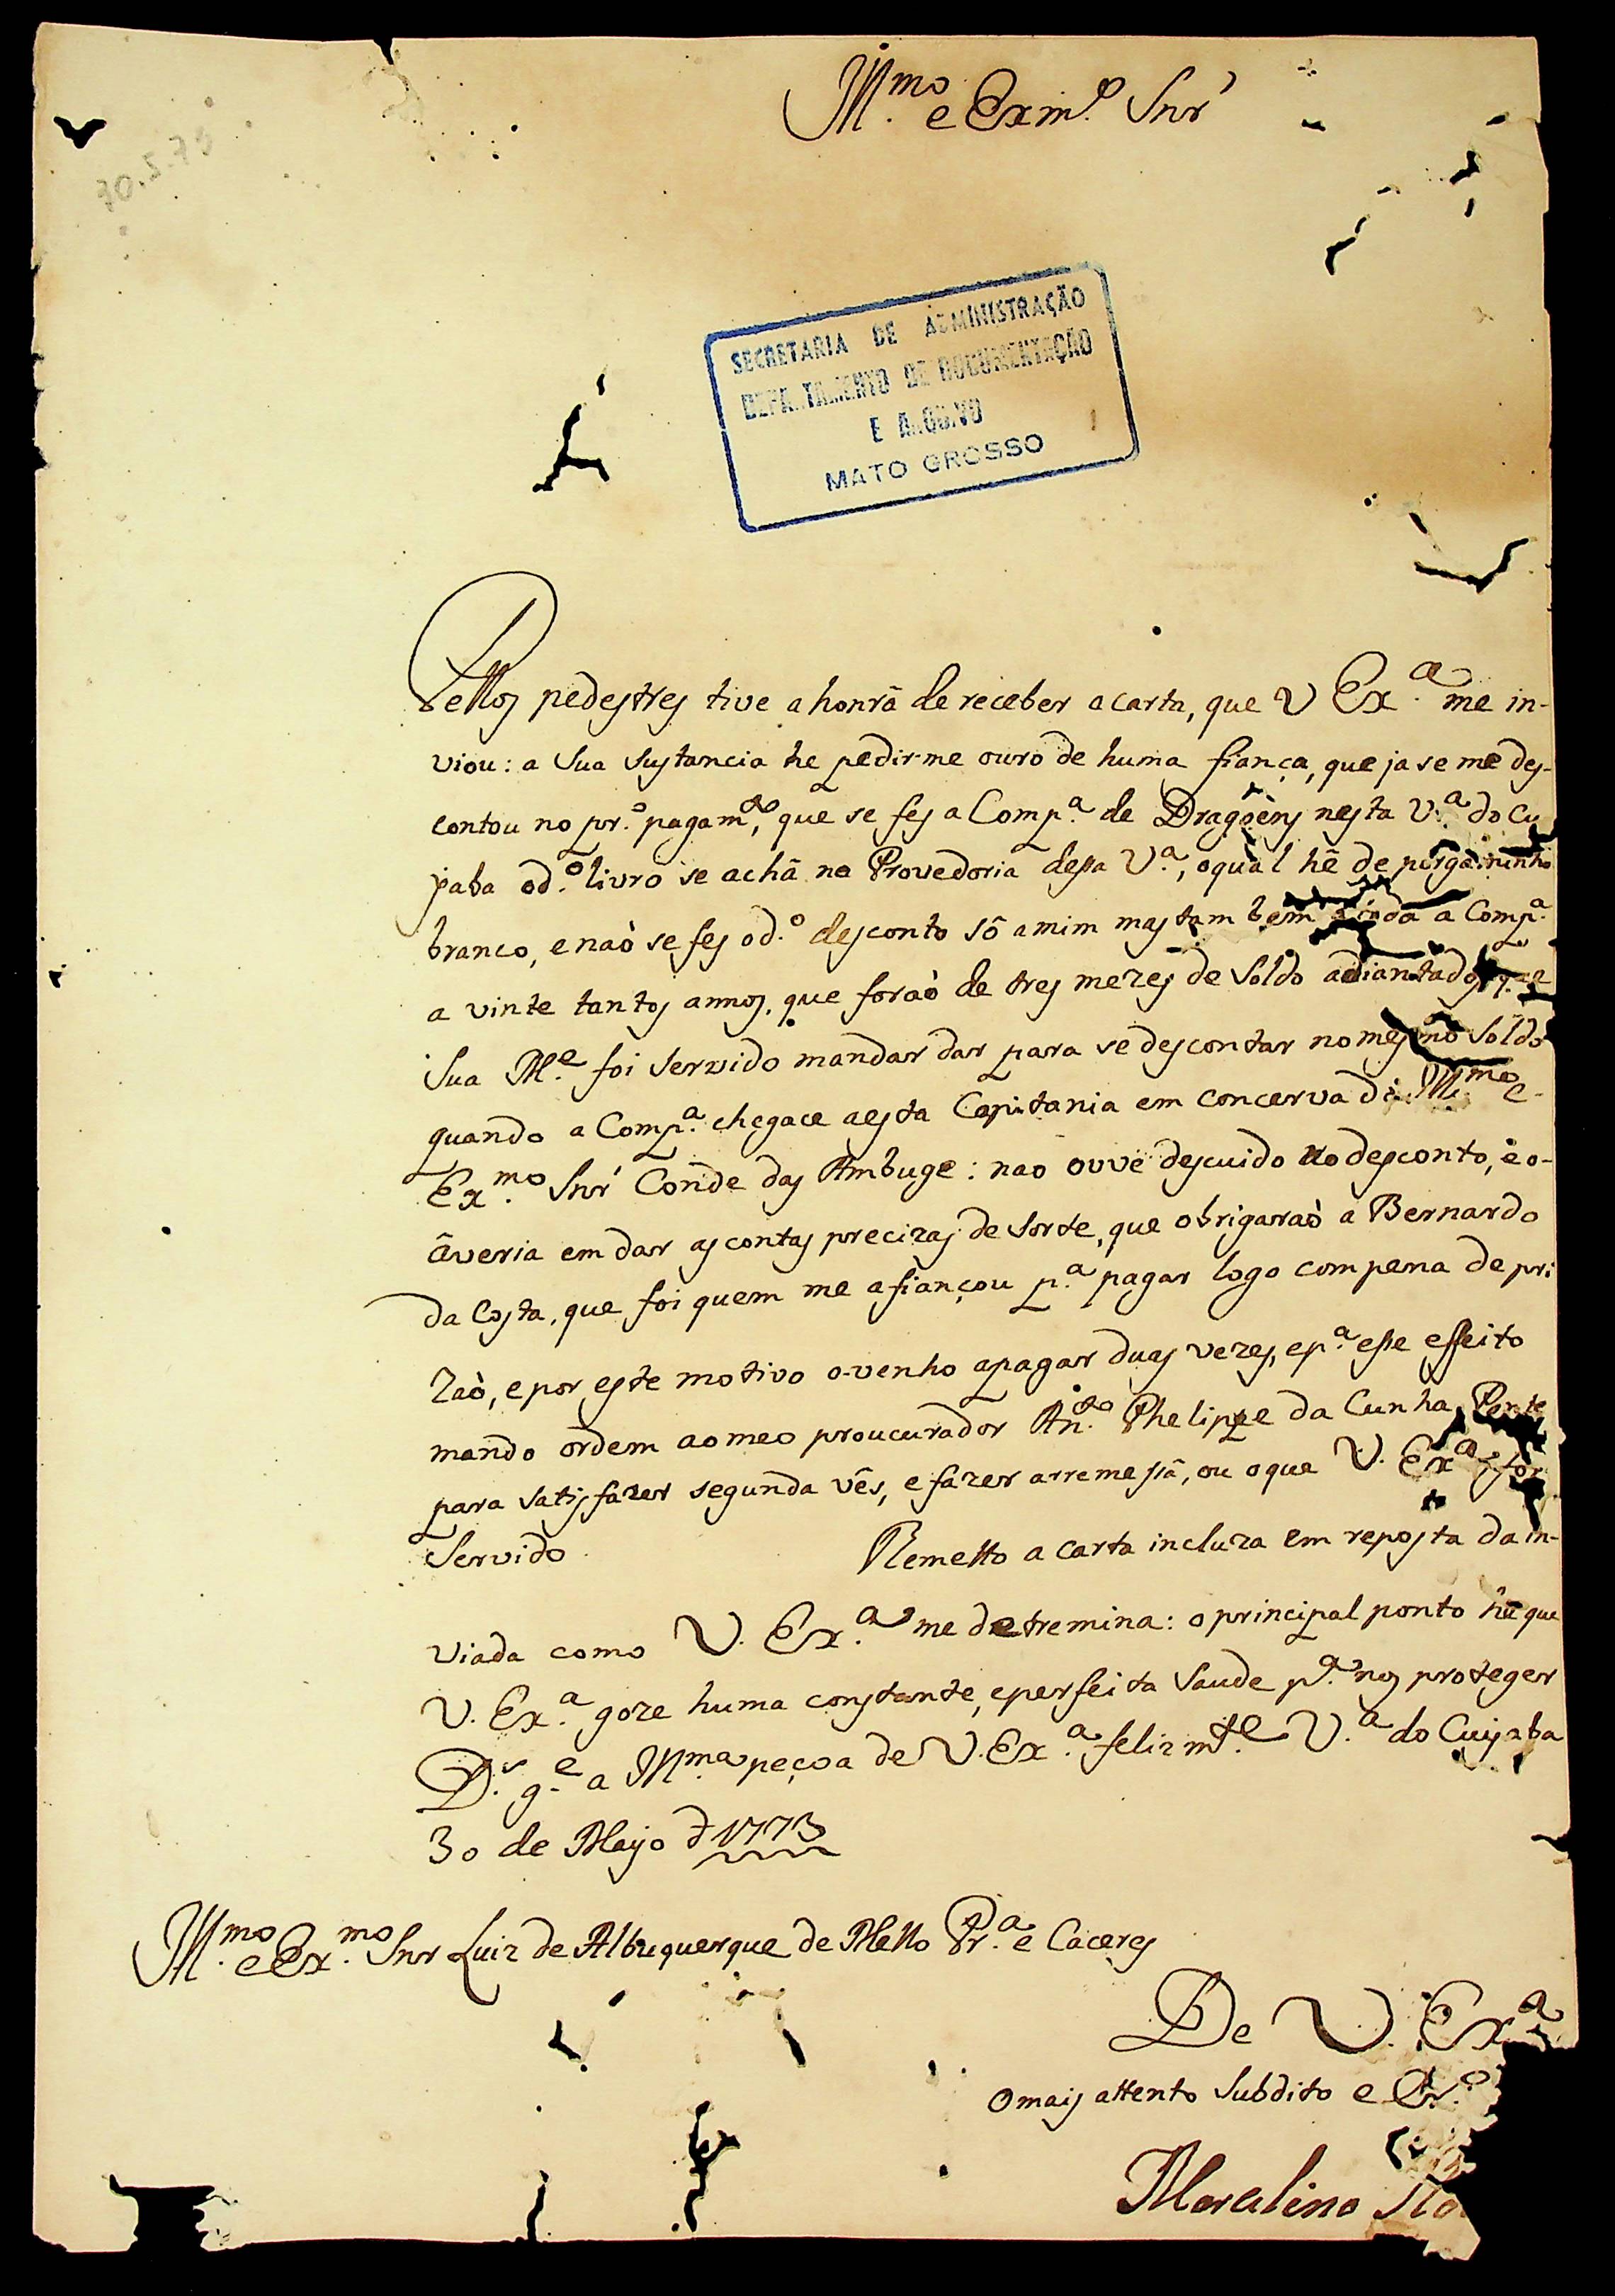 Ill.mo e Exm.o Snr'
30.5.73
SECRETARIA DE ADMINISTRAÇÃO
DEPARTAMENTO DE DOCUMENTAÇÃO
E ARQUIVO
MATO GROSSO
Pellos pedestres tive a honrã de receber a carta, que V Ex.a me in-
viou: a Sua Sustancia he pedir-me ouro de huma fiança, que ja se me des-
contou no pr.o pagam.to, que se fes a Comp.a de Dragoẽns nesta V.a do Cu
jaba o d.o livro se achã na Provedoria dessa V.a, o qual hẽ de pergaminho
branco, e naò se fes o d.o desconto sô a mim mas tam bem a toda a Comp.a
a vinte tantos annos, que foraò de tres mezes de Soldo adiantados que
Sua M.e foi Servido mandar dar para se descontar no mesmo Soldo
quando a Comp.a chegace a esta Capitania em concerva do Ill.mo e-
Ex.mo Snr' Conde das Ambuge: nao ouve descuido no desconto, e o-
âveria em dar as contas precizas de Sorte, que obrigaraò a Bernardo
da Costa, que foi quem me afiançou p.a pagar logo com pena de pri
zaò, e por este motivo o-venho a pagar duas vezes, e p.a esse effeito
mando ordem ao meo proucurador An.to Phelippe da Cunha Ponte
para Satisfazer segunda vês, e fazer a remessã, ou o que V. Ex.a for
Servido. Remetto a carta incluza em reposta da in-
viada como V. Ex.a me detremina: o principal ponto hẽ que
V. Ex.a goze huma constante, e perfeita Saude p.a nos proteger
D.s g.e a Ill.ma peçoa de V. Ex.a felizm.te V.a do Cuyaba
30 de Mayo d 1773
Ill.mo e Ex.mo Snr Luiz de Albuquerque de Mello Pr.a e Caceres
De V. Ex.a
O mais attento Subdito e Cr.o
Marcelino